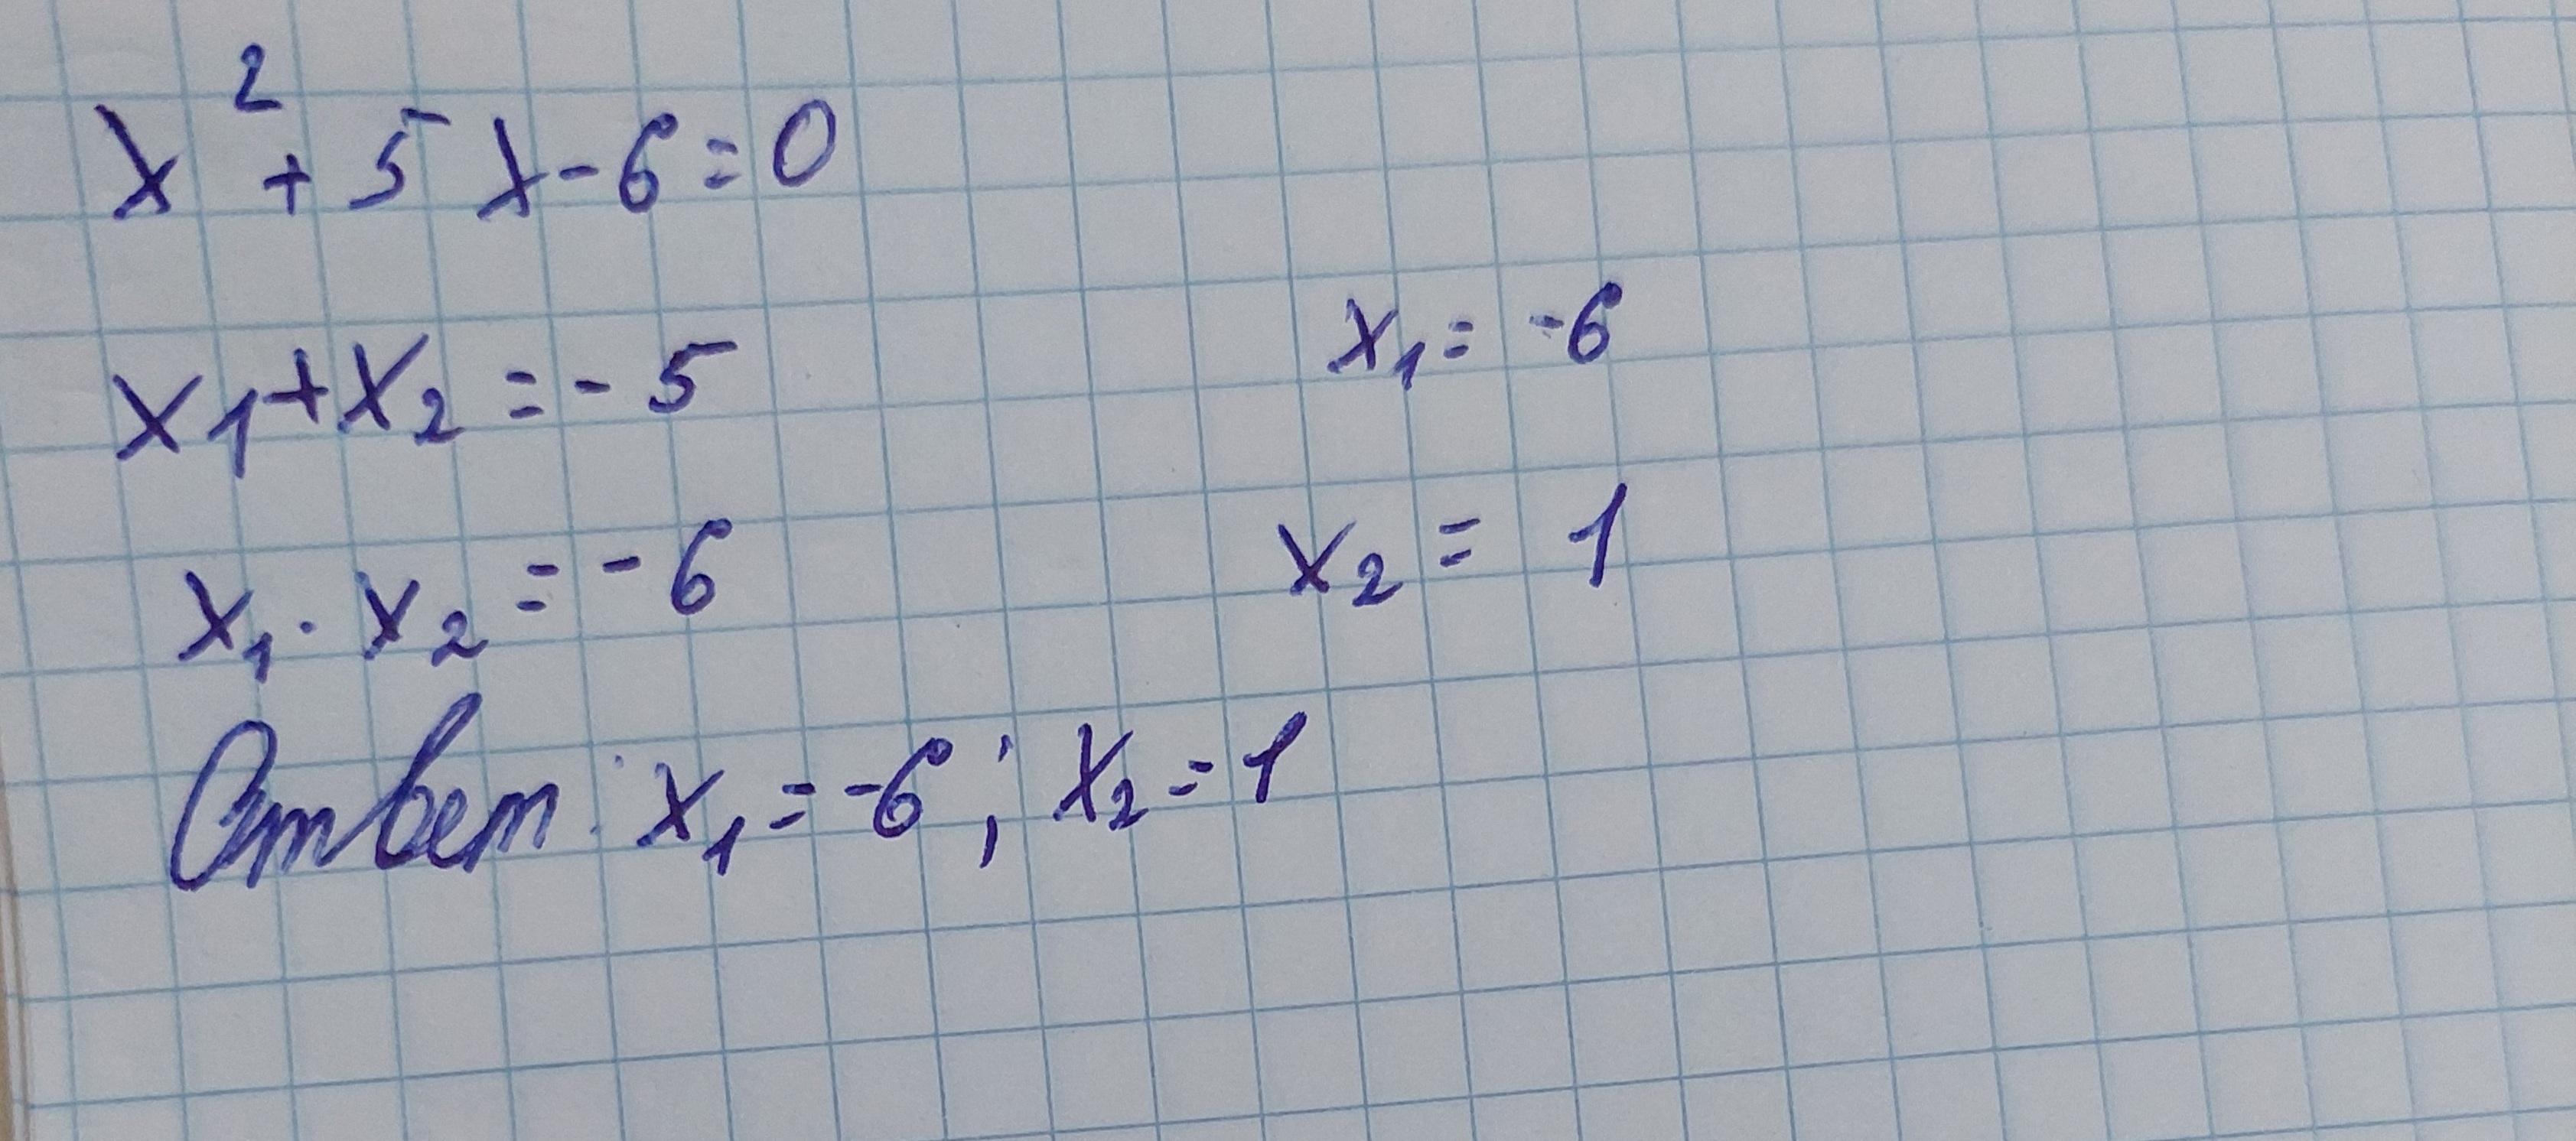 x² + 5x - 6 = 0
x₁ + x₂ = -5
x₁ = -6
x₁ · x₂ = -6
x₂ = 1
Ответ: x₁ = -6; x₂ = 1